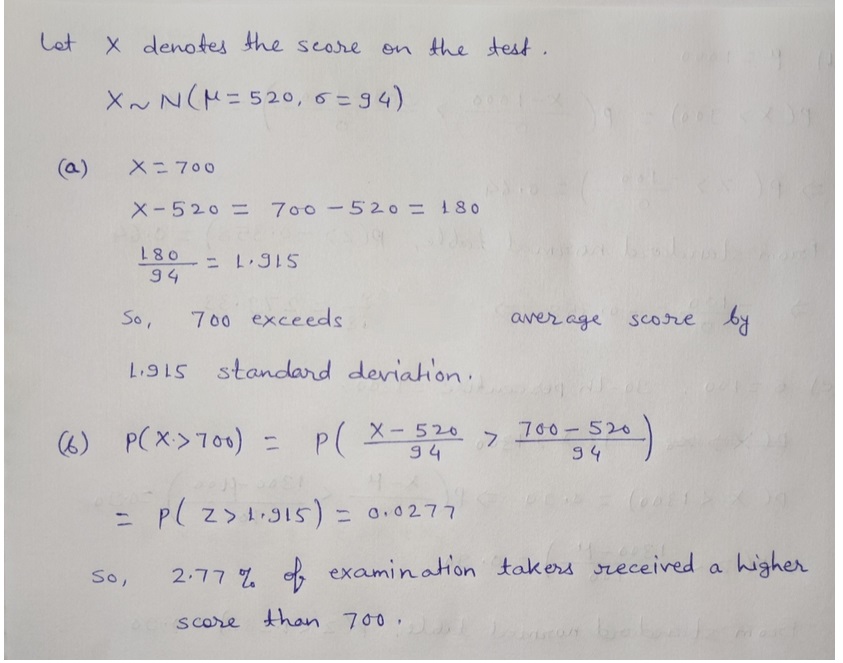 Let X denotes the score on the test.
X ~ N(μ = 520, σ = 94)
(a) X = 700
X - 520 = 700 - 520 = 180
180/94 = 1.915
So, 700 exceeds average score by
1.915 standard deviation.
(b) P(X > 700) = P( X - 520/94 > 700 - 520/94 )
= P( Z > 1.915) = 0.0277
So, 2.77 % of examination takers received a higher
score than 700.